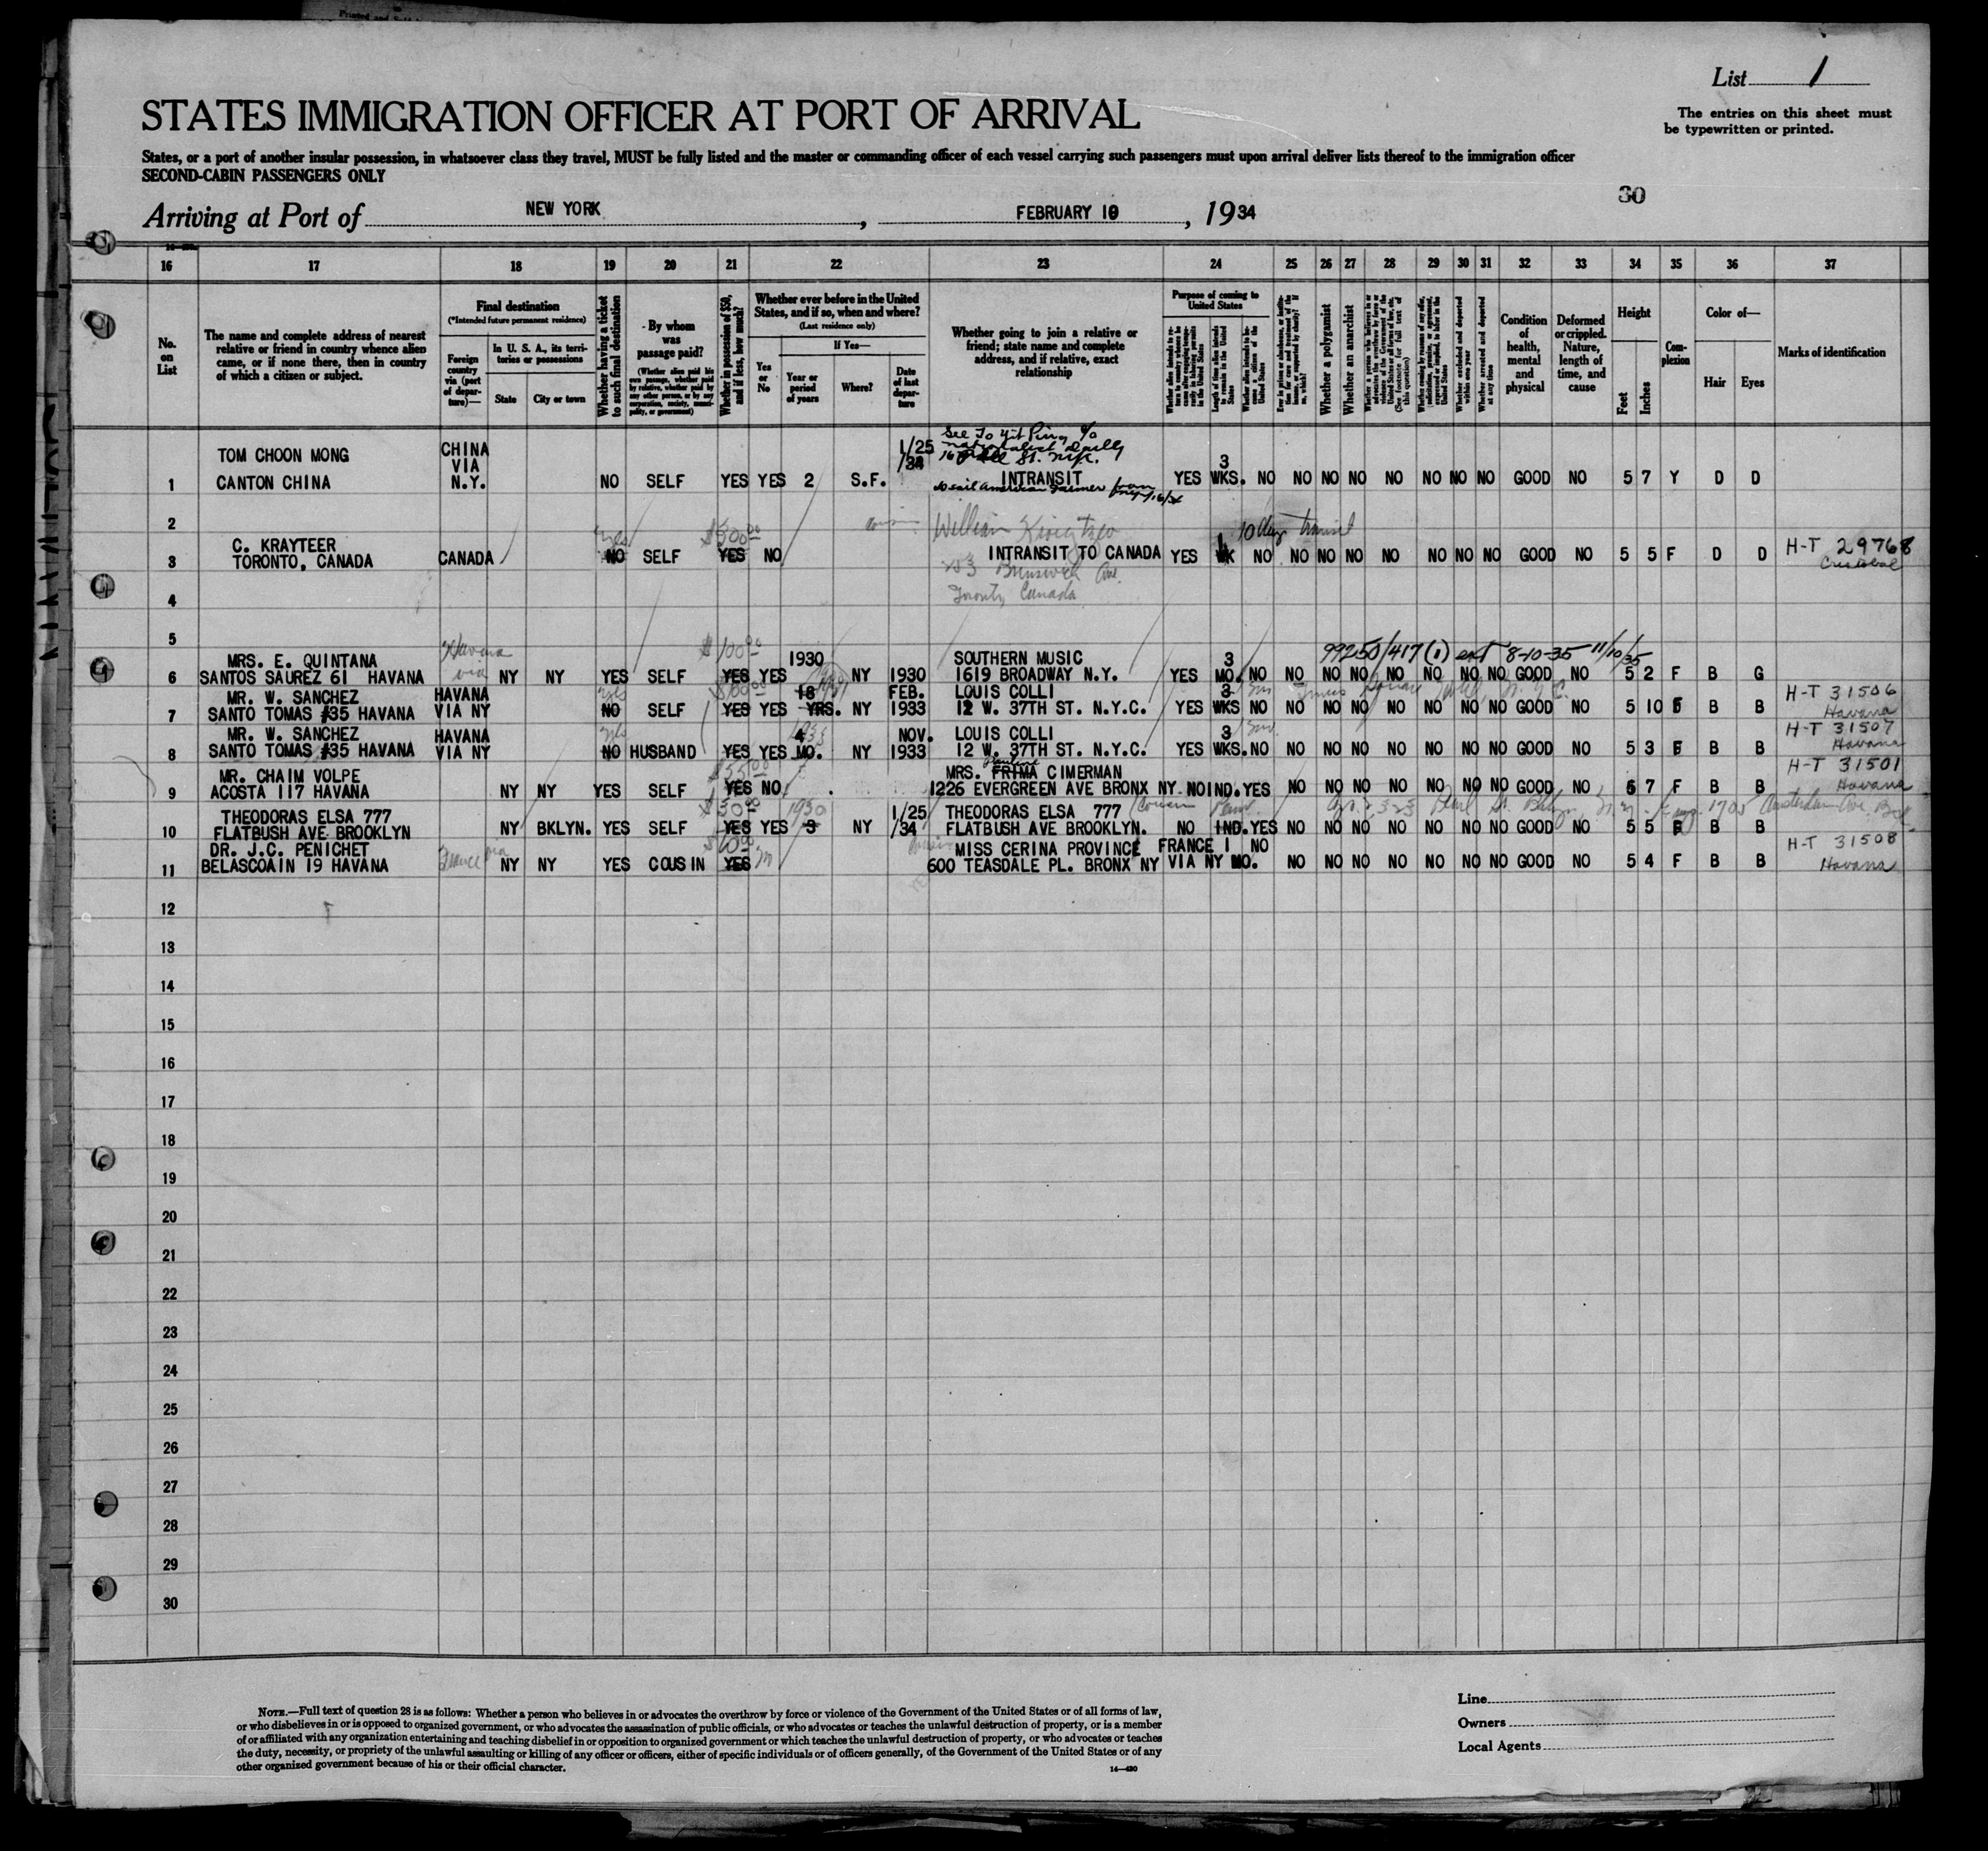 List 1
STATES IMMIGRATION OFFICER AT PORT OF ARRIVAL
The entries on this sheet must
be typewritten or printed.
States, or a port of another insular possession, in whatsoever class they travel, MUST be fully listed and the master or commanding officer of each vessel carrying such passengers must upon arrival deliver lists thereof to the immigration officer
SECOND-CABIN PASSENGERS ONLY
30
Arriving at Port of NEW YORK, FEBRUARY 10, 1934
16 17 18 19 20 21 22 23 24 25 26 27 28 29 30 31 32 33 34 35 36 37
No. on List
The name and complete address of nearest
relative or friend in country whence alien
came, or if none there, then in country
of which a citizen or subject.
Final destination
(*Intended future permanent residence)
Foreign country via (port of departure)—
In U. S. A., its territories or possessions
State
City or town
Whether having a ticket to such final destination
By whom was passage paid?
(Whether alien paid his own passage, whether paid by relative, whether paid by any other person, or by any corporation, society, municipality, or government)
Whether in possession of $50, and if less, how much?
Whether ever before in the United States, and if so, when and where?
(Last residence only)
Yes or No
If Yes—
Year or period of years
Where?
Date of last departure
Whether going to join a relative or
friend; state name and complete
address, and if relative, exact
relationship
Purpose of coming to United States
Length of time alien intends to remain in the United States
Whether alien intends to become a citizen of the United States
Whether a polygamist
Whether an anarchist
Condition of health, mental and physical
Deformed or crippled. Nature, length of time, and cause
Height
Feet
Inches
Complexion
Color of—
Hair
Eyes
Marks of identification
See To Yit Ping c/o
TOM CHOON MONG CHINA VIA N.Y. 1/25/34
1 CANTON CHINA NO SELF YES YES 2 S.F. INTRANSIT YES 3 WKS. NO NO NO NO NO NO NO NO GOOD NO 5 7 Y D D
2 William 10 day transit
C. KRAYTEER yes $500.00
3 TORONTO, CANADA CANADA NO SELF YES NO INTRANSIT TO CANADA YES 1 WK NO NO NO NO NO NO NO NO GOOD NO 5 5 F D D H-T 29768 Cristobal
Brunswick Ave.
4 Toronto, Canada
5 Havana via $100.00 99250/417 (1) ext 8-10-35 11/10/35
MRS. E. QUINTANA 1930 SOUTHERN MUSIC 3
6 SANTOS SAUREZ 61 HAVANA NY NY YES SELF YES YES NY 1930 1619 BROADWAY N.Y. YES MO. NO NO NO NO NO NO NO NO GOOD NO 5 2 F B G
MR. W. SANCHEZ HAVANA yes 18 FEB. LOUIS COLLI 3 H-T 31506
7 SANTO TOMAS #35 HAVANA VIA NY NO SELF YES YES YRS. NY 1933 12 W. 37TH ST. N.Y.C. YES WKS NO NO NO NO NO NO NO NO GOOD NO 5 10 F B B Havana
MR. W. SANCHEZ HAVANA yes 4 NOV. LOUIS COLLI 3 H-T 31507
8 SANTO TOMAS #35 HAVANA VIA NY NO HUSBAND YES YES MO. NY 1933 12 W. 37TH ST. N.Y.C. YES WKS. NO NO NO NO NO NO NO NO GOOD NO 5 3 F B B Havana
MR. CHAIM VOLPE MRS. FRIMA Pauline CIMERMAN H-T 31501
9 ACOSTA 117 HAVANA NY NY YES SELF YES NO 1226 EVERGREEN AVE BRONX NY. NO IND. YES NO NO NO NO NO NO NO GOOD NO 5 7 F B B Havana
THEODORAS ELSA 777 $30.00 1930 1/25 THEODORAS ELSA 777 Cousin
10 FLATBUSH AVE BROOKLYN NY BKLYN. YES SELF YES YES 3 NY /34 FLATBUSH AVE BROOKLYN. NO IND. YES NO NO NO NO NO NO NO GOOD NO 5 5 F B B
DR. J.C. PENICHET France via $60.00 MISS CERINA PROVINCE FRANCE 1 NO H-T 31508
11 BELASCOAIN 19 HAVANA NY NY YES COUSIN YES 600 TEASDALE PL. BRONX NY VIA NY MO. NO NO NO NO NO NO NO GOOD NO 5 4 F B B Havana
12
13
14
15
16
17
18
19
20
21
22
23
24
25
26
27
28
29
30
NOTE.—Full text of question 28 is as follows: Whether a person who believes in or advocates the overthrow by force or violence of the Government of the United States or of all forms of law,
or who disbelieves in or is opposed to organized government, or who advocates the assassination of public officials, or who advocates or teaches the unlawful destruction of property, or is a member
of or affiliated with any organization entertaining and teaching disbelief in or opposition to organized government or which teaches the unlawful destruction of property, or who advocates or teaches
the duty, necessity, or propriety of the unlawful assaulting or killing of any officer or officers, either of specific individuals or of officers generally, of the Government of the United States or of any
other organized government because of his or their official character.
14—420
Line
Owners
Local Agents